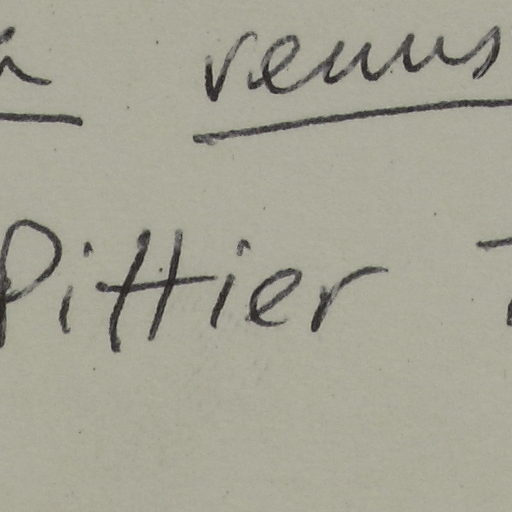 venus
Pittier